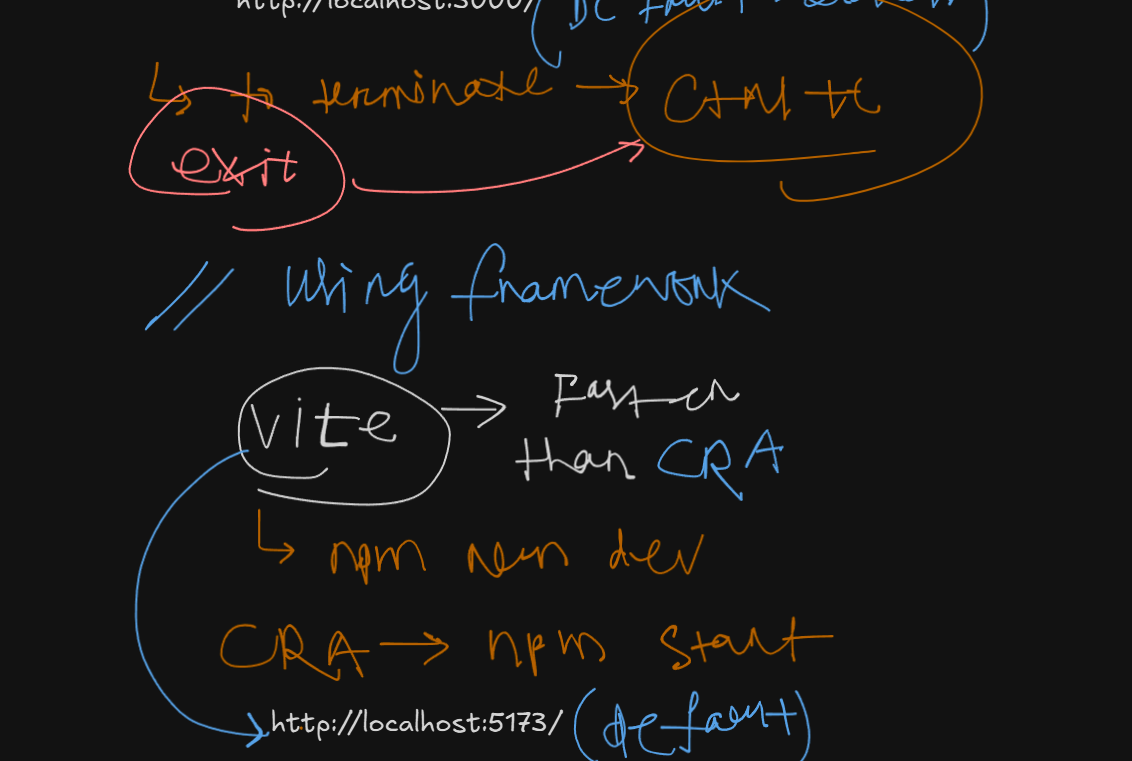 http://localhost:3000/ (Default
↳ to terminate → Ctrl + c
exit
// Using framework
vite → Faster
than CRA
↳ npm run dev
CRA → npm start
http://localhost:5173/ (default)